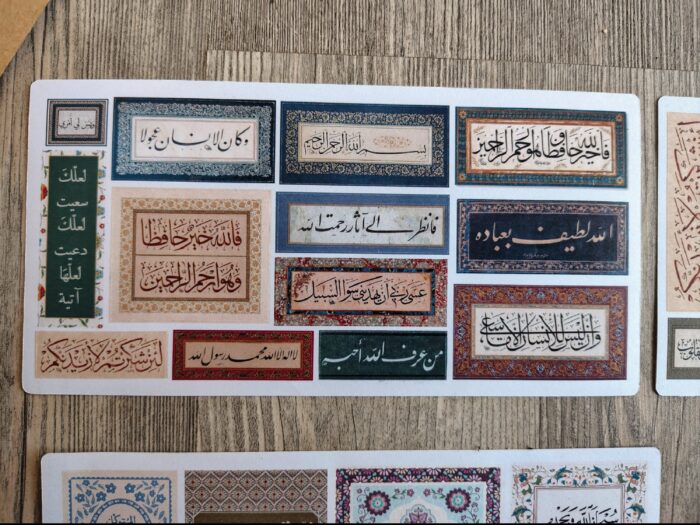 ويسر لي أمري
وكان الإنسان عجولا
بسم الله الرحمن الرحيم
فالله خير حافظا وهو أرحم الراحمين
لعلّك
سعيت
لعلّك
دعيت
لعلّها
آتية
فالله خير حافظا
وهو أرحم الراحمين
فانظر إلى آثار رحمت الله
الله لطيف بعباده
عسى ربي أن يهديني سواء السبيل
وأن ليس للإنسان إلا ما سعى
لئن شكرتم لأزيدنكم
لا اله الا الله محمد رسول الله
من عرف الله أحبه